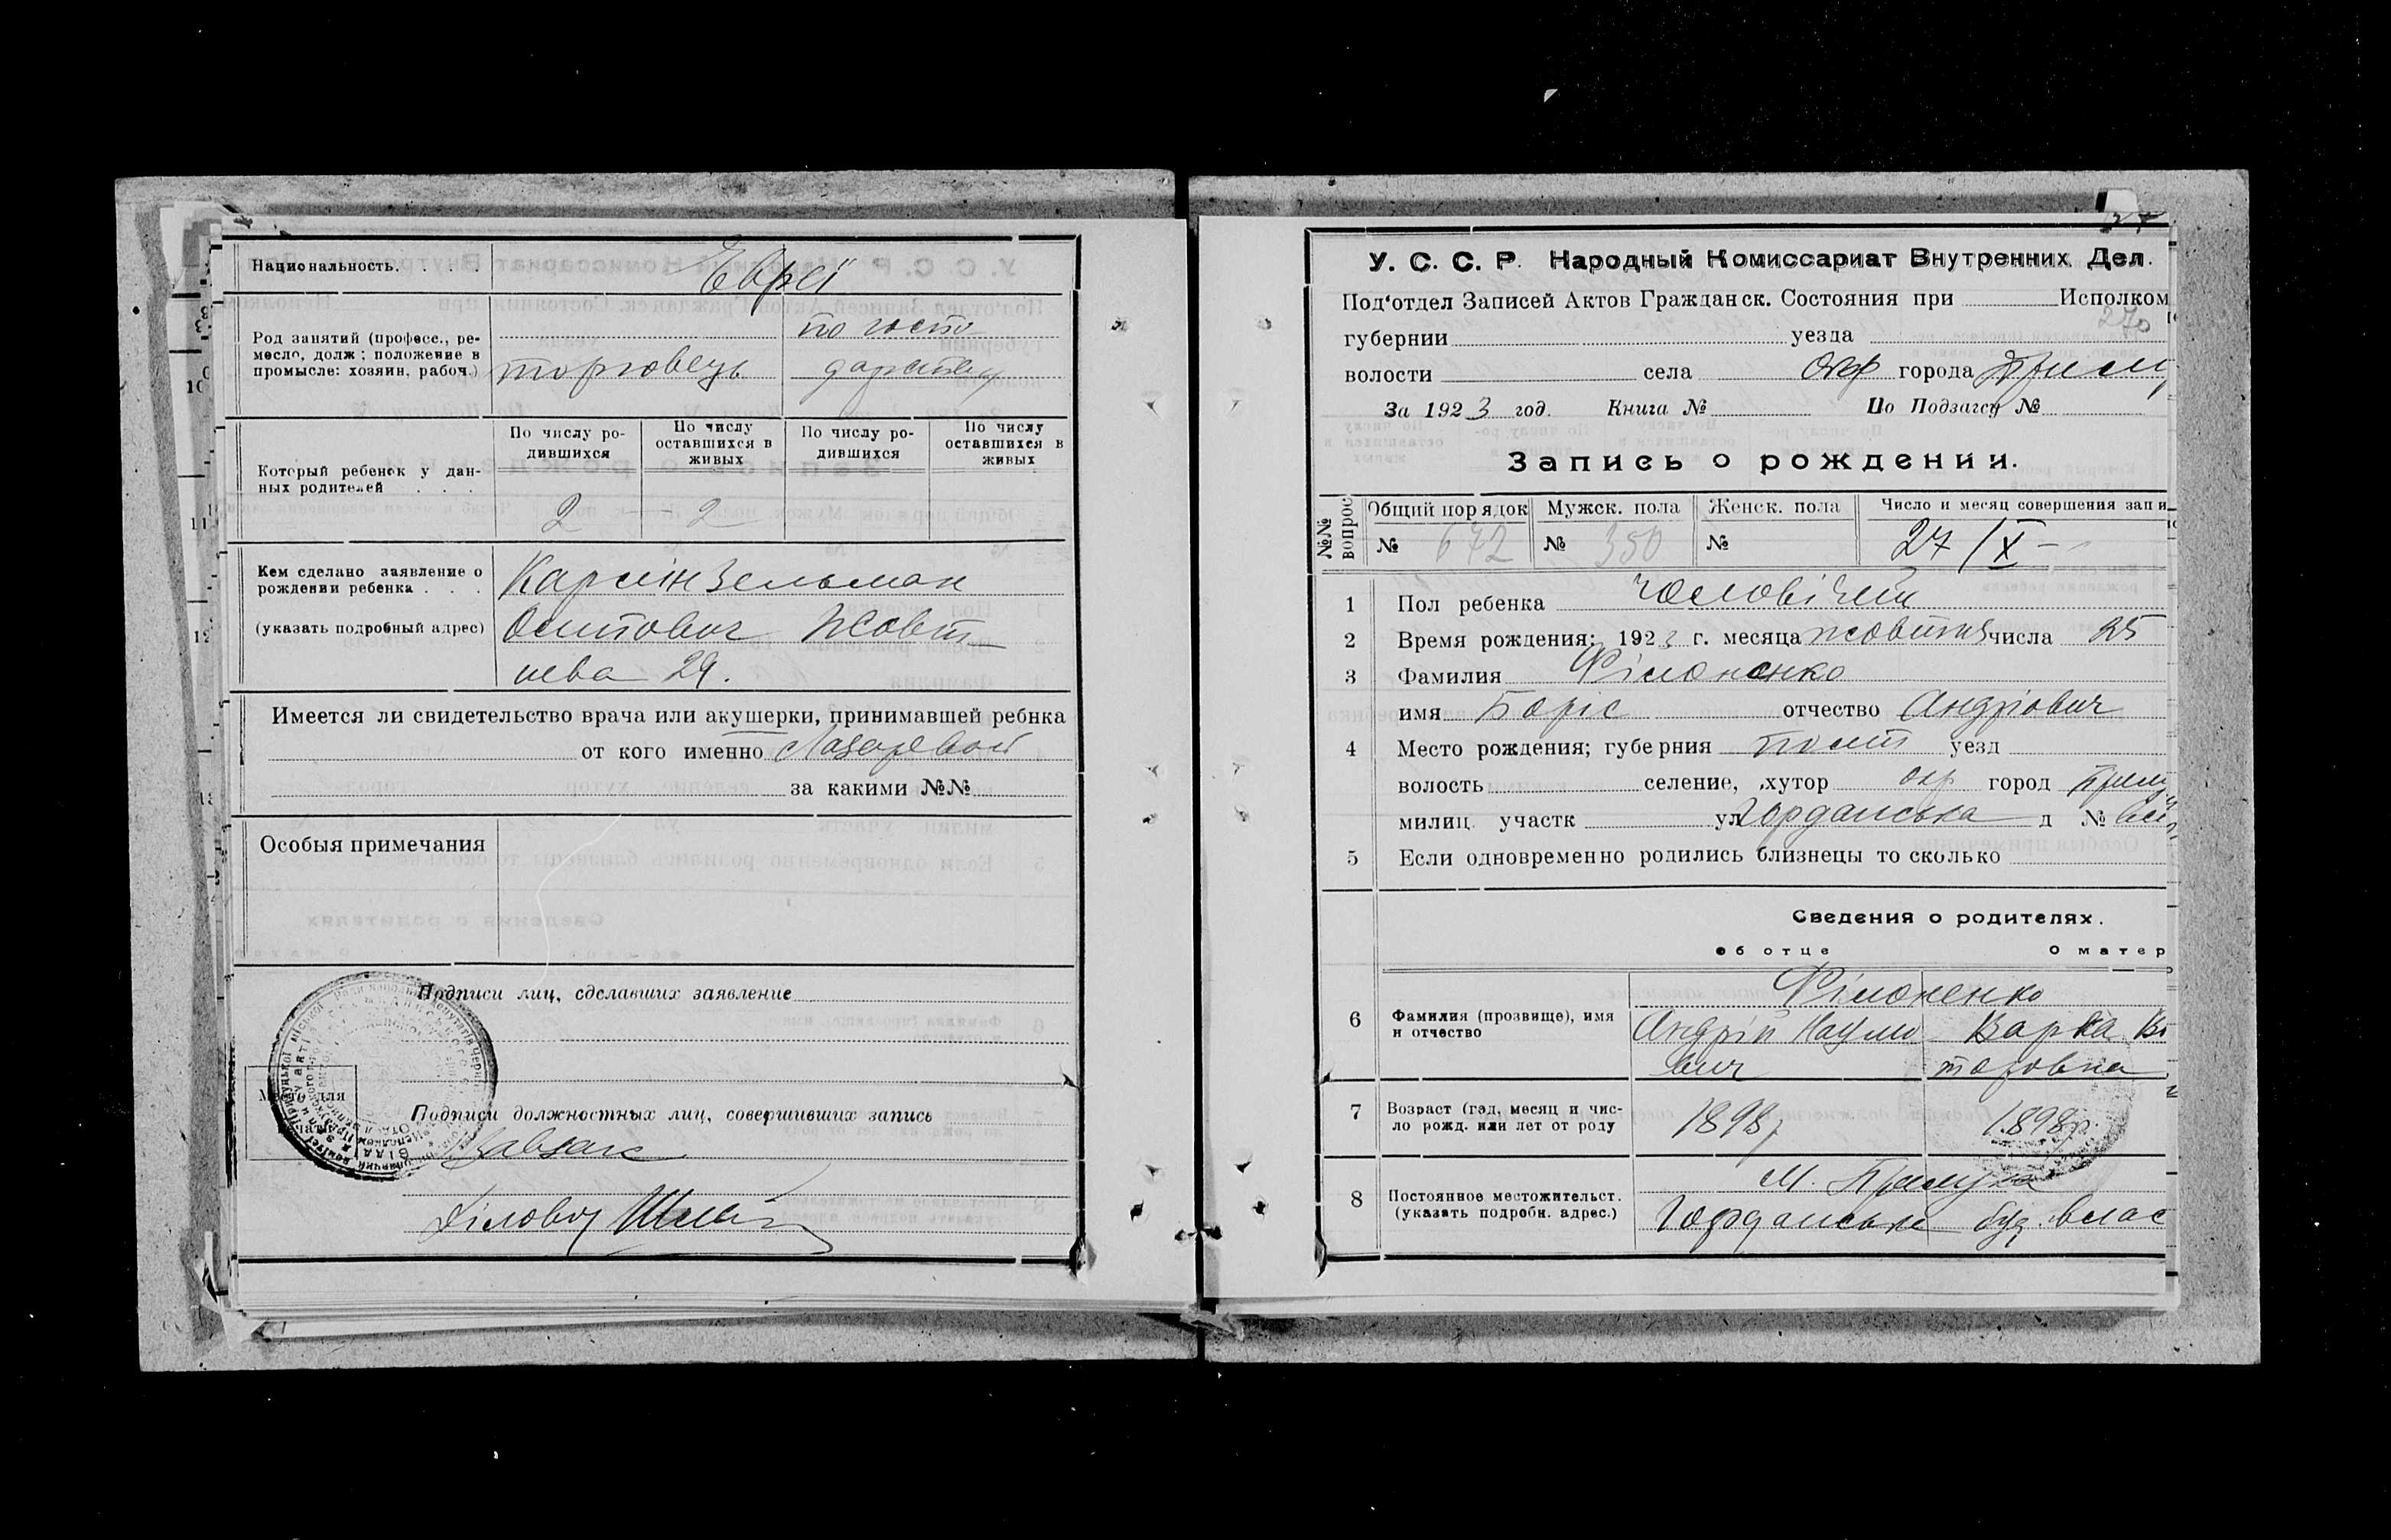 Национальность. . . . Евреї
Род занятий (професс., ре-
месло, долж; положение в
промысле: хозяин, рабоч.)
торговець
по госпо
дарству
Который ребенок у дан-
ных родителей . . .
По числу ро-
дившихся
По числу
оставшихся в
живых
По числу ро-
дившихся
По числу
оставшихся в
живых
2 2
Кем сделано заявление о
рождении ребенка . . .
(указать подробный адрес)
Карсін Зельман
Осипович Жовт
нева 29.
Имеется ли свидетельство врача или акушерки, принимавшей ребнка
от кого именно Лазаревой
за какими №№
Особыя примечания
Подписи лиц, сделавших заявление
Место для
Подписи должностных лиц, совершивших запись
Діловод
У. С. С. Р. Народный Комиссариат Внутренних Дел.
Под‘отдел Записей Актов Гражданск. Состояния при Исполком
270
губернии уезда
волости села Окр города Прилу
За 1923 год. Книга № По Подзагсу №
Запись о рождении.
№№ вопрос
Общий порядок
№ 672
Мужск. пола
№ 350
Женск. пола
№
Число и месяц совершения запи
27/X –
1 Пол ребенка Чоловічий
2 Время рождения: 1923 г. месяца жовтня числа 25
3 Фамилия Філоненко
имя Боріс отчество Андріович
4 Место рождения; губерния Полт уезд
волость селение, хутор окр город Прилу
милиц. участк ул Йорданська д №
5 Если одновременно родились близнецы то сколько
Сведения о родителях.
об отце О матер
6 Фамилия (прозвище), имя
и отчество
Філоненко
Андрій Наумо
вич
Варка Ві
торовна
7 Возраст (год, месяц и чис-
ло рожд. или лет от роду
1898р
1898р.
8 Постоянное местожительст.
(указать подробн. адрес.)
М. Прилука
Йорданська буд. влас